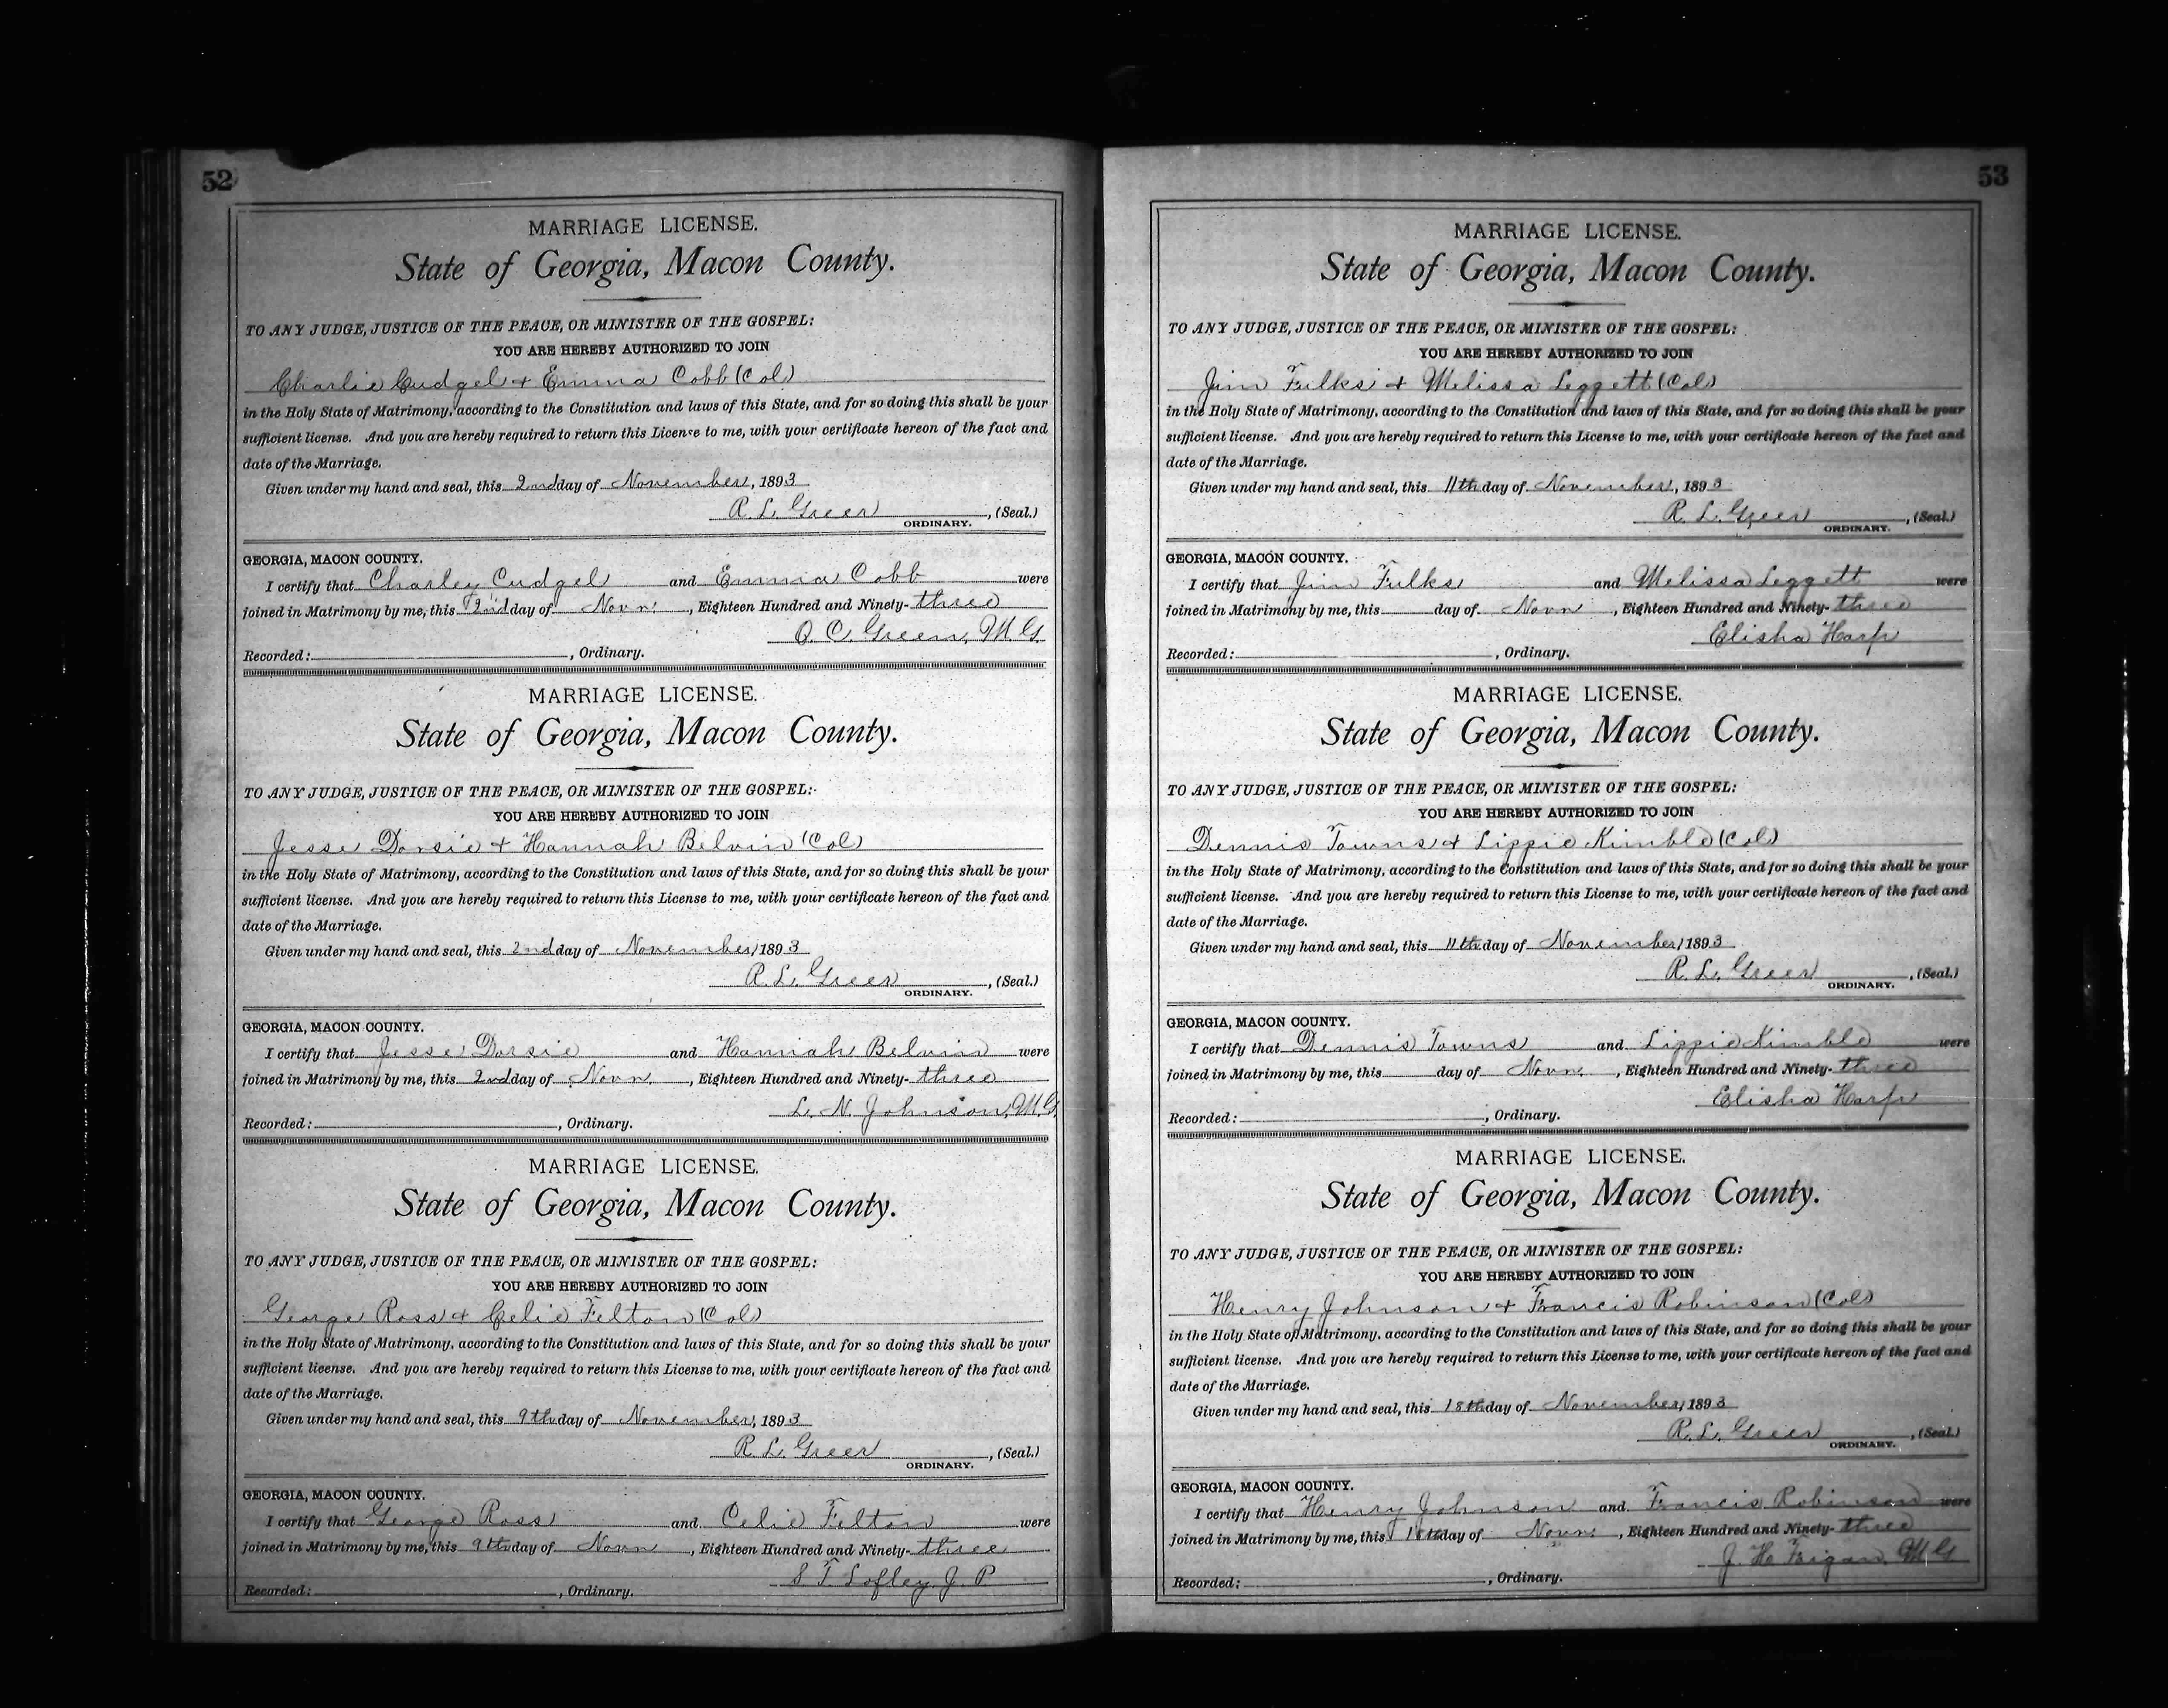 52
MARRIAGE LICENSE.
State of Georgia, Macon County.
TO ANY JUDGE, JUSTICE OF THE PEACE, OR MINISTER OF THE GOSPEL:
YOU ARE HEREBY AUTHORIZED TO JOIN
Charlie Cudgel + Emma Cobb (Col)
in the Holy State of Matrimony, according to the Constitution and laws of this State, and for so doing this shall be your
sufficient license. And you are hereby required to return this License to me, with your certificate hereon of the fact and
date of the Marriage.
Given under my hand and seal, this 2nd day of November, 1893
R. L. Greer, (Seal.)
ORDINARY.
GEORGIA, MACON COUNTY.
I certify that Charley Cudgel and Emma Cobb were
joined in Matrimony by me, this 2nd day of Novr, Eighteen Hundred and Ninety-three
O. C. Green, M.G.
Recorded: , Ordinary.
MARRIAGE LICENSE.
State of Georgia, Macon County.
TO ANY JUDGE, JUSTICE OF THE PEACE, OR MINISTER OF THE GOSPEL:
YOU ARE HEREBY AUTHORIZED TO JOIN
Jesse Dorsie + Hannah Belvin (Col)
in the Holy State of Matrimony, according to the Constitution and laws of this State, and for so doing this shall be your
sufficient license. And you are hereby required to return this License to me, with your certificate hereon of the fact and
date of the Marriage.
Given under my hand and seal, this 2nd day of November, 1893
R. L. Greer, (Seal.)
ORDINARY.
GEORGIA, MACON COUNTY.
I certify that Jesse Dorsie and Hannah Belvin were
joined in Matrimony by me, this 2nd day of Novr, Eighteen Hundred and Ninety-three
L. N. Johnson, M.G.
Recorded: , Ordinary.
MARRIAGE LICENSE.
State of Georgia, Macon County.
TO ANY JUDGE, JUSTICE OF THE PEACE, OR MINISTER OF THE GOSPEL:
YOU ARE HEREBY AUTHORIZED TO JOIN
George Ross + Celie Felton (Col)
in the Holy State of Matrimony, according to the Constitution and laws of this State, and for so doing this shall be your
sufficient license. And you are hereby required to return this License to me, with your certificate hereon of the fact and
date of the Marriage.
Given under my hand and seal, this 9th day of November, 1893
R. L. Greer, (Seal.)
ORDINARY.
GEORGIA, MACON COUNTY.
I certify that George Ross and Celie Felton were
joined in Matrimony by me, this 9th day of Novr, Eighteen Hundred and Ninety-three
S. T. Lofley J. P.
Recorded: , Ordinary.
53
MARRIAGE LICENSE.
State of Georgia, Macon County.
TO ANY JUDGE, JUSTICE OF THE PEACE, OR MINISTER OF THE GOSPEL:
YOU ARE HEREBY AUTHORIZED TO JOIN
Jim Fulks + Melissa Leggett (Col)
in the Holy State of Matrimony, according to the Constitution and laws of this State, and for so doing this shall be your
sufficient license. And you are hereby required to return this License to me, with your certificate hereon of the fact and
date of the Marriage.
Given under my hand and seal, this 11th day of November, 1893
R. L. Greer, (Seal.)
ORDINARY.
GEORGIA, MACON COUNTY.
I certify that Jim Fulks and Melissa Leggett were
joined in Matrimony by me, this day of Novr, Eighteen Hundred and Ninety-three
Elisha Harp
Recorded: , Ordinary.
MARRIAGE LICENSE.
State of Georgia, Macon County.
TO ANY JUDGE, JUSTICE OF THE PEACE, OR MINISTER OF THE GOSPEL:
YOU ARE HEREBY AUTHORIZED TO JOIN
Dennis Towns + Lizzie Kimble (Col)
in the Holy State of Matrimony, according to the Constitution and laws of this State, and for so doing this shall be your
sufficient license. And you are hereby required to return this License to me, with your certificate hereon of the fact and
date of the Marriage.
Given under my hand and seal, this 11th day of November, 1893
R. L. Greer, (Seal.)
ORDINARY.
GEORGIA, MACON COUNTY.
I certify that Dennis Towns and Lizzie Kimble were
joined in Matrimony by me, this day of Novr, Eighteen Hundred and Ninety-three
Elisha Harp
Recorded: , Ordinary.
MARRIAGE LICENSE.
State of Georgia, Macon County.
TO ANY JUDGE, JUSTICE OF THE PEACE, OR MINISTER OF THE GOSPEL:
YOU ARE HEREBY AUTHORIZED TO JOIN
Henry Johnson + Francis Robinson (Col)
in the Holy State of Matrimony, according to the Constitution and laws of this State, and for so doing this shall be your
sufficient license. And you are hereby required to return this License to me, with your certificate hereon of the fact and
date of the Marriage.
Given under my hand and seal, this 18th day of November, 1893
R. L. Greer, (Seal.)
ORDINARY.
GEORGIA, MACON COUNTY.
I certify that Henry Johnson and Francis Robinson were
joined in Matrimony by me, this 18th day of Novr, Eighteen Hundred and Ninety-three
J. H. M.G
Recorded: , Ordinary.